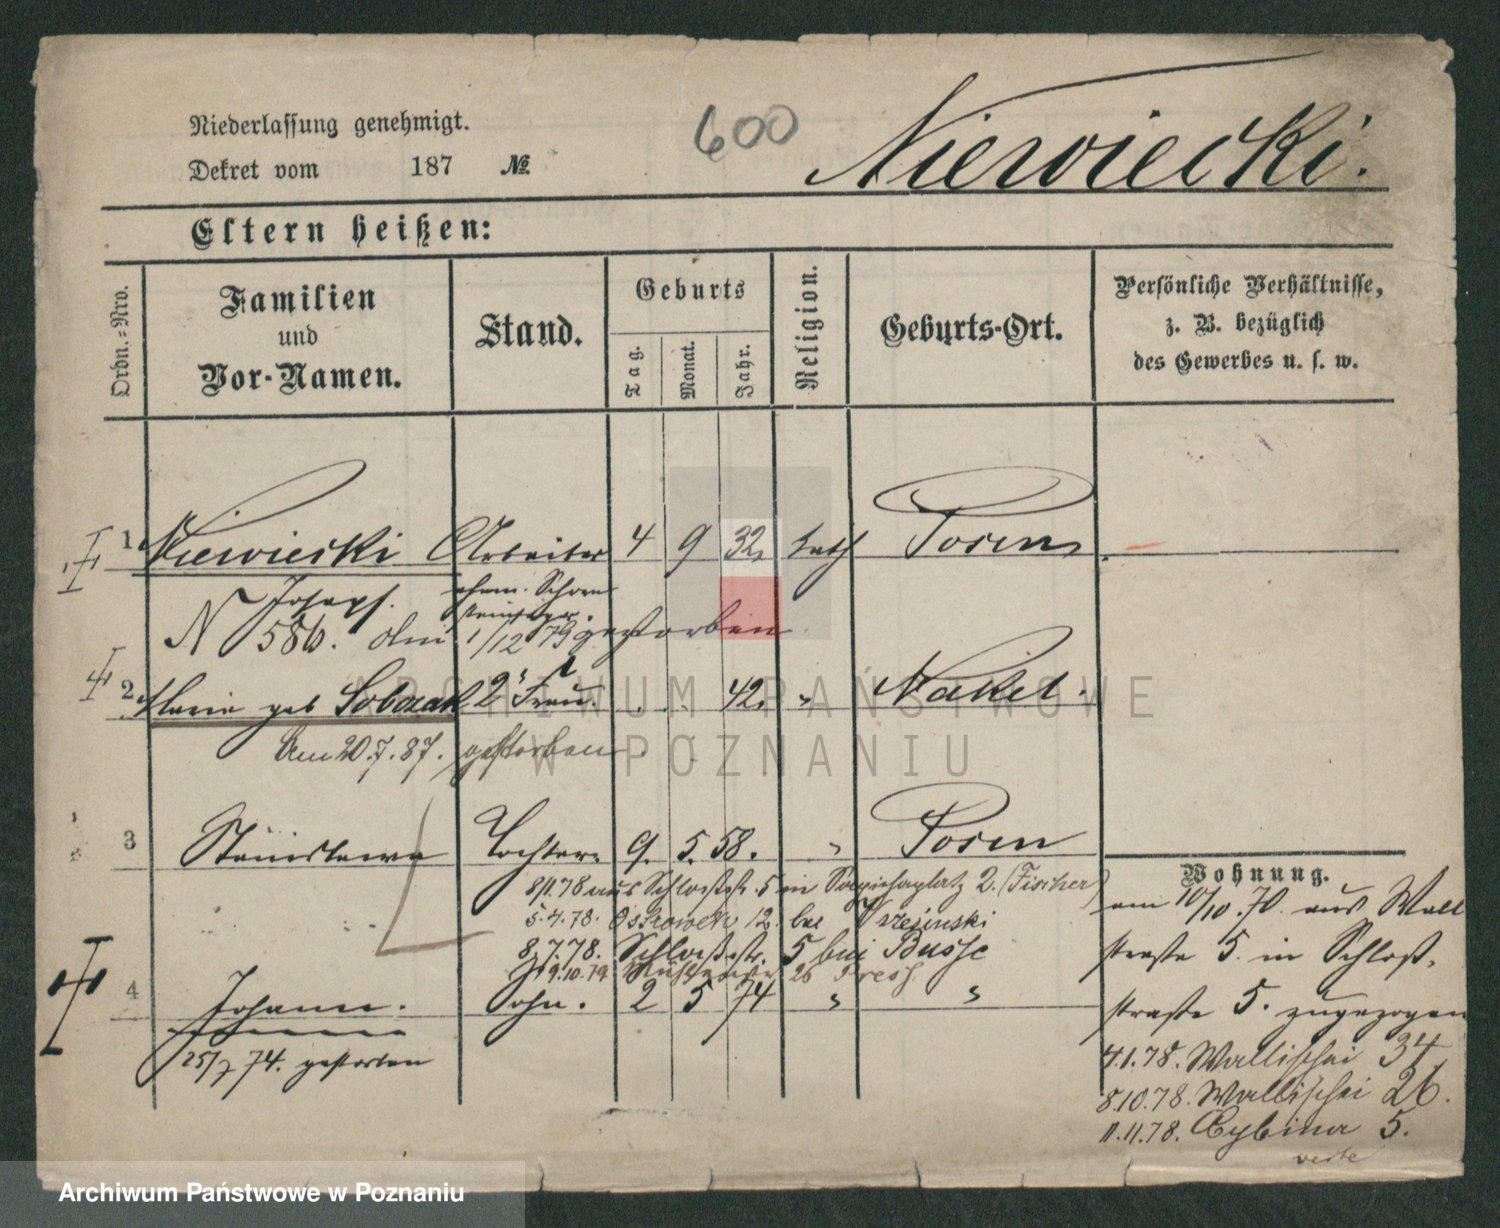 Niederlassung genehmigt.
Dekret vom 187 №
600
Niewiecki.
Eltern heißen:
Ordn.-Nro.
Familien
und
Vor-Namen.
Stand.
Geburts
Tag.
Monat.
Jahr.
Religion.
Geburts-Ort.
Persönliche Verhältnisse,
z. B. bezüglich
des Gewerbes u. s. w.
1 Niewiecki Arbeiter 4 9 32. kath Posen
Josef. ehem. Schorn
steinfeger.
N 586. den 1/12 79 gestorben
2 Maria geb Sobczak 2te Frau. 42. " Nakel.
Am 20.7.87. gestorben
3 Stanislawa Tochter 9. 5. 58. " Posen
8/11.78 aus Schloßstr. 5 in Sapiehaplatz 2. (Fischer)
5.4.78. Ostrowek 12. bei
8.7.78. Schloßstr. 5 bei Busse
9.10.79 26
4 Johann. Sohn. 2 5 74 " "
25/7 74. gestorben
Wohnung.
am 10/10.70. aus Wall
straße 5. in Schloß-
straße 5. zugezogen
4.1.78. Wallischei 34
8.10.78. Wallischei 26.
11.11.78. Cybina 5.
verte
ARCHIWUM PAŃSTWOWE
W POZNANIU
Archiwum Państwowe w Poznaniu